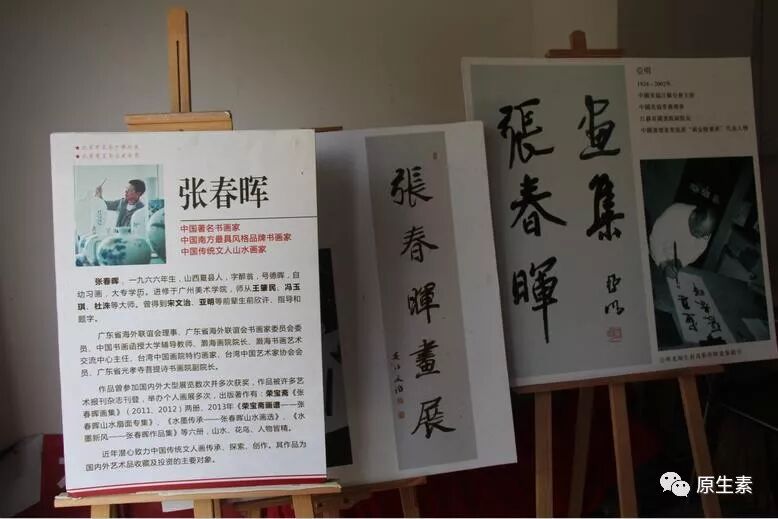 张春晖
中国著名书画家
中国南方最具风格品牌书画家
中国传统文人山水画家
张春晖，一九六六年生，山西夏县人，字醉翁，号德晖，自
幼习画，大专学历。进修于广州美术学院，师从王肇民、冯玉
琪、杜洙等大师。曾得到宋文治、亚明等前辈生前欣许、指导和
题字。
广东省海外联谊会理事、广东省海外联谊会书画家委员会委
员、中国书画函授大学辅导教师、渤海画院院长、渤海书画艺术
交流中心主任、台湾中国画院特约画家、台湾中国艺术家协会会
员、广东省光孝寺菩提诗书画院副院长。
作品曾参加国内外大型展览数次并多次获奖，作品被许多艺
术报刊杂志刊登，举办个人画展多次，出版著作有：荣宝斋《张
春晖画集》（2011、2012）两册、2013年《荣宝斋画谱——张
春晖山水扇面专集》、《水墨传承——张春晖山水画选》、《水
墨新风——张春晖作品集》等六册，山水、花鸟、人物皆精。
近年潜心致力中国传统文人画传承、探索、创作。其作品为
国内外艺术品收藏及投资的主要对象。
張春暉畫展
畫集
張春暉
亚明
亞明
1924－2002年
原生素